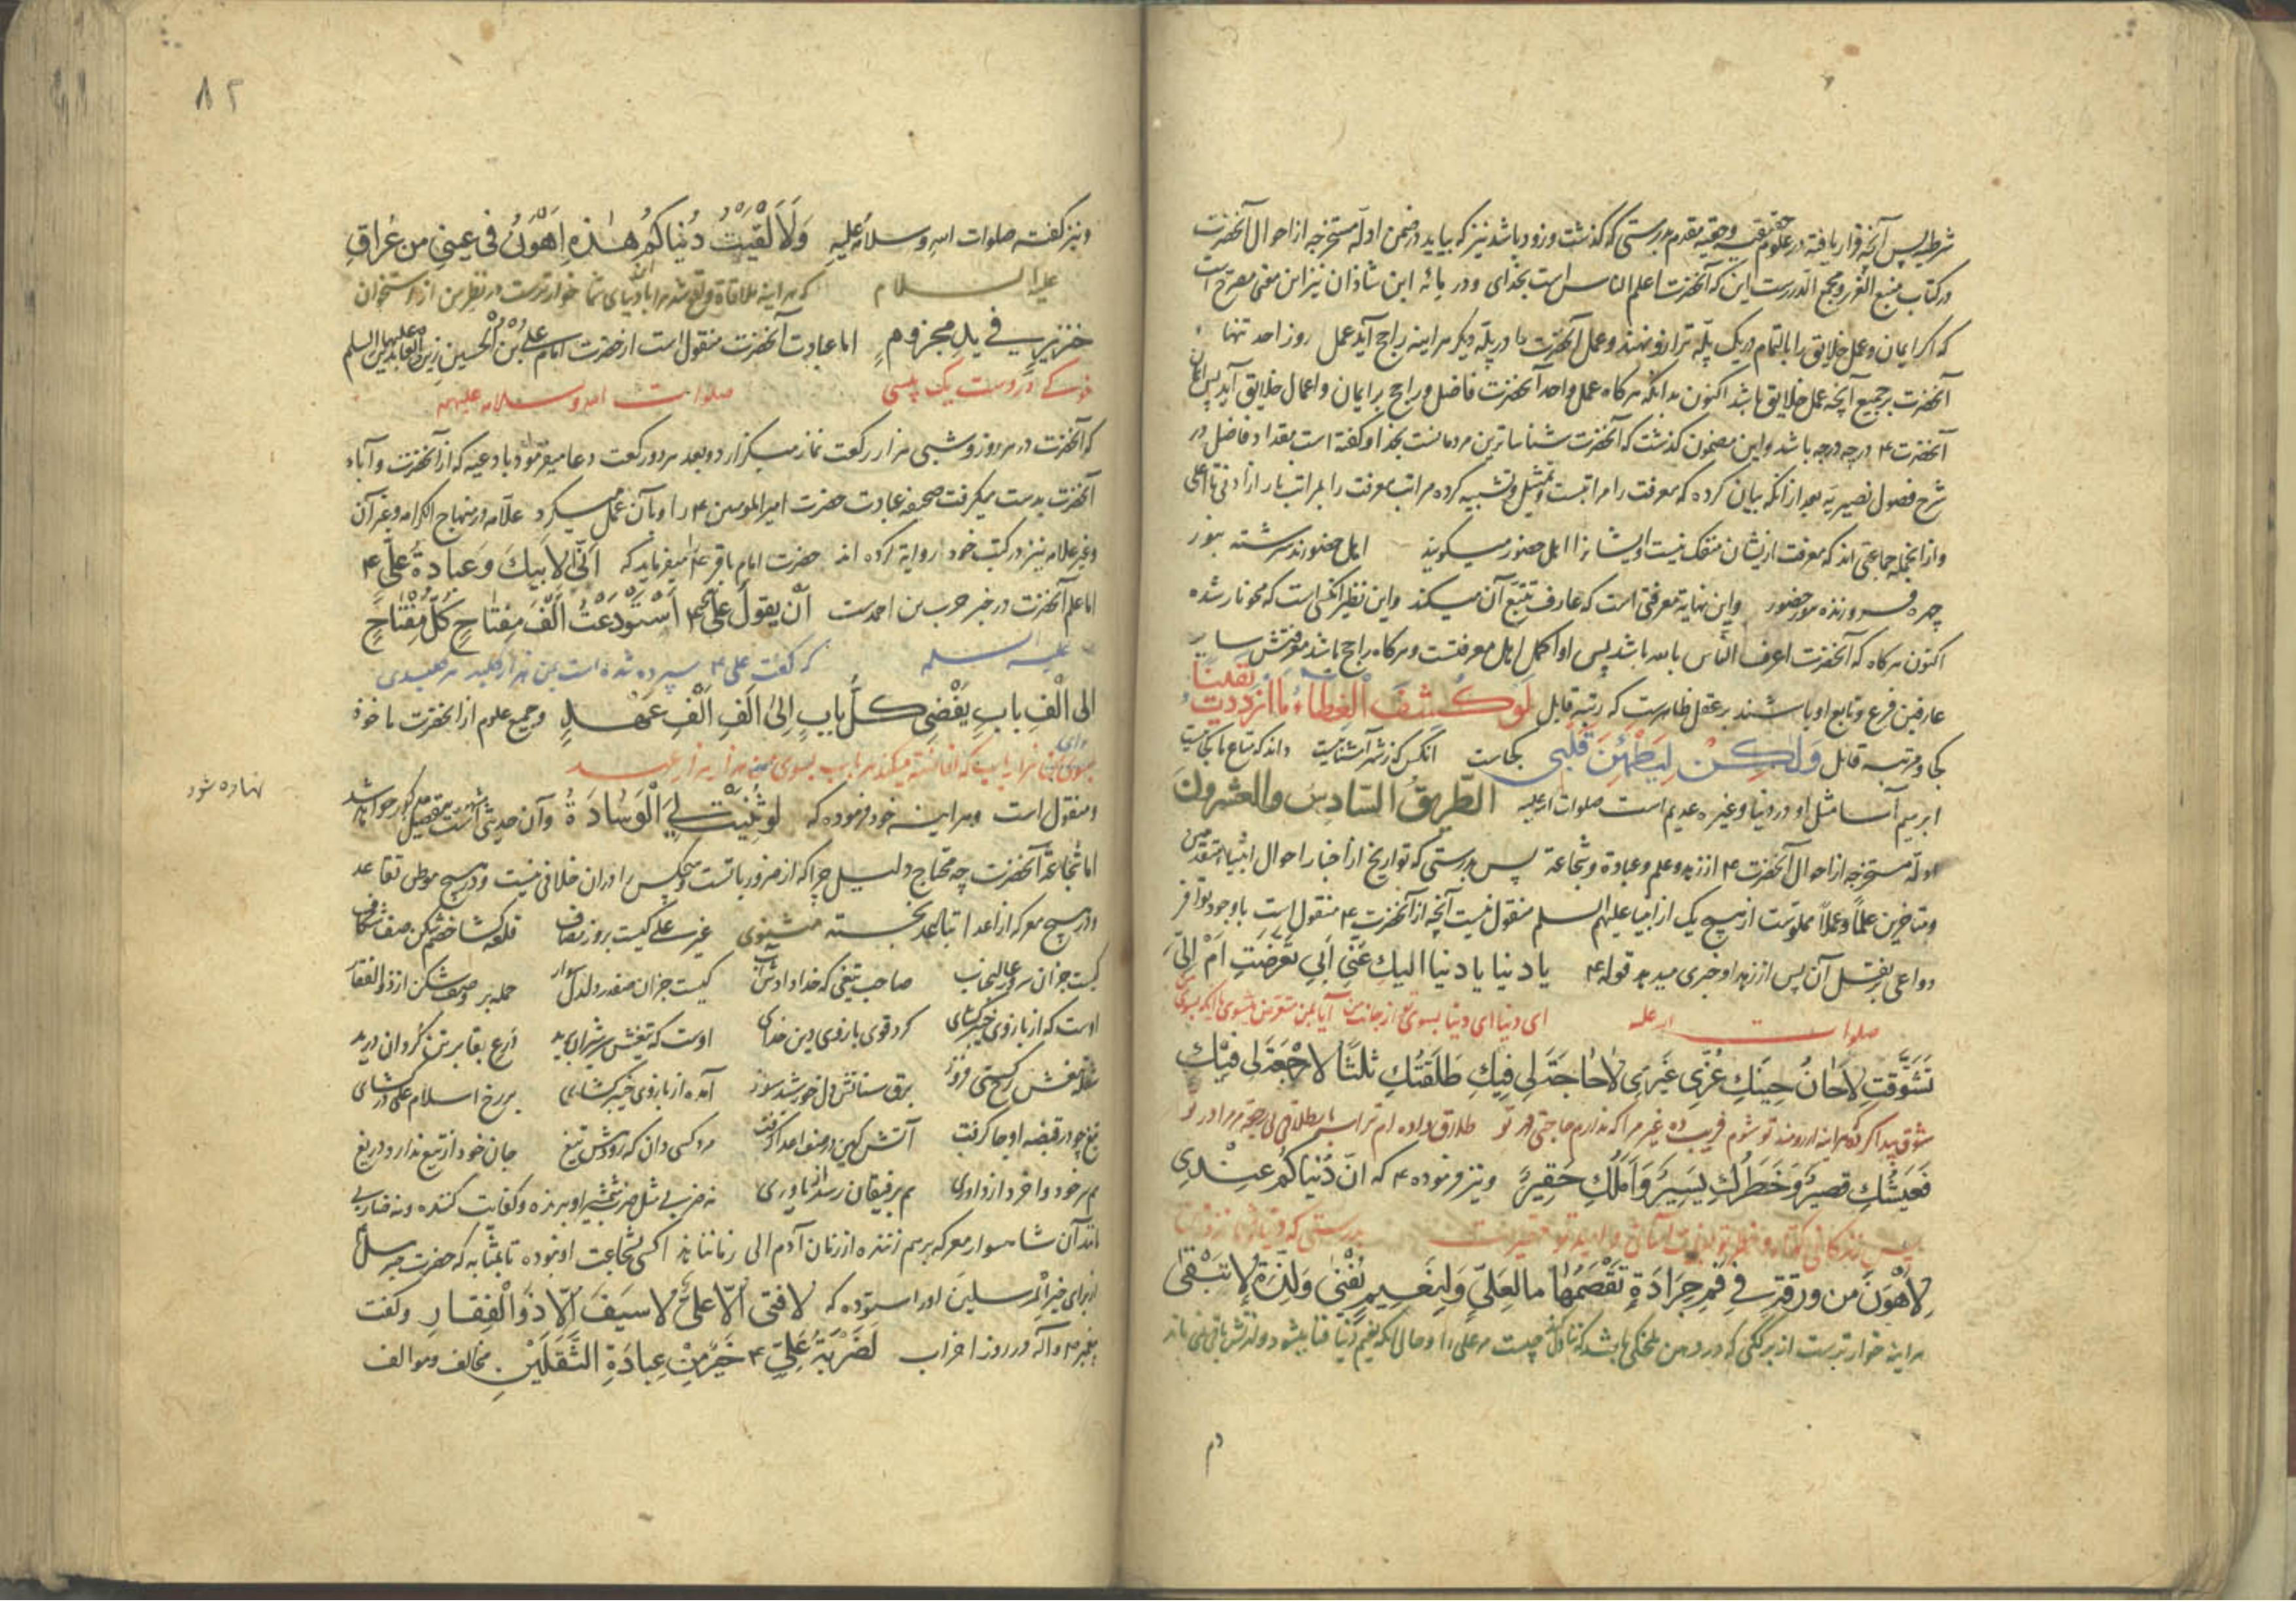 شرطیه پس آنچه قرار یافته در علوم حقیقیه و حقیه مقدم بدرستی که گذشت و زود باشد نیز که بیاید در ضمن ادلّه مستخرجه از احوال آنحضرت
در کتاب منبع الغرر و مجمع الدرر است این که آنحضرت اعلم الناس است بخدای و در مائه ابن شاذان نیز این معنی مصرح است
که اگر ایمان و عمل خلایق را بالتمام در یک پلّه ترازو نهند و عمل آنحضرت را در پلّه دیگر هر اینه راجح آید عمل روز احد تنها
آنحضرت بر جمیع آنچه عمل خلایق باشد اکنون بدانکه هرگاه عمل واحد آنحضرت فاضل و راجح بر ایمان و اعمال خلایق آید پس ایمان
آنحضرت ۴ درجه درجه باشد و این مضمون گذشت که آنحضرت شناساترین مردمانست بخدا و گفته است مقداد فاضل در
شرح فصول نصیریّه بعد از انکه بیان کرده که معرفت را مراتبست و تمثیل و تشبیه کرده مراتب معرفت را بمراتب نار از ادنی تا اعلی
و از انجمله جماعتی اند که معرفت ازیشان منفک نیست و ایشانرا اهل حضور میگویند اهل حضورند سرشته بنور
چهره فروزنده نور حضور و این نهایة معرفتی است که عارف تتبّع آن میکند و این نظیر آنکسی است که محو نار شده
اکنون هرگاه که آنحضرت اعرف النّاس بالله باشد پس او اکمل اهل معرفتست و هرگاه راجح باشد معرفتش سایر
عارفین فرع و تابع او باشند بر عقل ظاهرست که رتبه قایل لَوْ كُشِفَ الْغِطَاءُ مَا ازْدَدْتُ يَقِيناً
کجا و مرتبه قابل وَلٰكِنْ لِيَطْمَئِنَّ قَلْبِي کجاست آنکس که ز شهر آشنائیست داند که متاع ما کجائیست
ابرهیم آسا مثل او در دنیا و غیره عدیم است صلوات الله علیه الطَّرِيقُ السَّادِسُ وَالعشرونَ
ادلّه مستخرجه از احوال آنحضرت ۴ از زهد و علم و عبادة و شجاعة پس بدرستی که تواریخ از اخبار احوال انبیاء متقدمین
و متاخرین علماً و عملاً مملوّست از هیچ یک از انبیا علیهم السلم منقول نیست آنچه از آنحضرت ۴ منقول است با وجود توافر
دواعی بر نقل آن پس از زهد او خبری میدهد قوله ۴ یا دنیا یا دنیا الیكِ عَنّي اَبِي تَعَرَّضْتِ اَمْ اِلَيَّ
صلوات الله علیه ای دنیا ای دنیا بسوی تو از جانب من آیا بمن متعرض میشوی یا انکه بسوی من
تَشَوَّقْتِ لاحَانَ حِينُكِ غُرّي غَيْرِي لاحَاجَةَ لِي فِيكِ طَلَّقْتُكِ ثَلٰثاً لارَجْعَةَ لِي فِيْكِ
شوق پیدا کرده هر اینه ارزومند تو شوم فریب ده غیر مرا که ندارم حاجتی در تو طلاق داده ام ترا سه بار طلاقی لی رجعة مر مرا در تو
فَعَيْشُكِ قَصِيرٌ وَخَطَرُكِ يَسِيرٌ وَاَمَلُكِ حَقِيرٌ و نیز فرموده ۴ که انّ دُنْیَاكُم عِنْدِي
پس زندگانی بدرستی که دنیای شما نزد من
لاَهْوَنُ مِن وَرَقَةٍ فِي فَمِ جِرَادَةٍ تَقْضَمُهَا مَا لِعَلِيٍّ وَلِنَعِيمٍ يَفْنٰى وَلَذَّةٍ لا تَبْقٰى
هر اینه خوارترست از برگی که در دهن ملخکی باشد که تناول کند چیست مر علی را و حال انکه نعیم دنیا فنا میشود و لذتش باقی نمی ماند
دم
۸۲
و نیز گفته صلوات الله و سلامه علیه وَلَاَلْقَيْتُ دُنْیَاكُم هٰذِهِ اَهْوَنُ فی عیني من عُرَاقِ
علیه السلام که هر اینه ملاقاة واقع شد مرا با دنیای شما خوارترست در نظر من از استخوان
خنزیرٍ في یدِ مجزومٍ اما عبادت آنحضرت منقول است از حضرت امام علی بن الحسین زین العابدین علیهما السلم
خوک که در دست یک پیسی صلوات الله و سلامه علیهم
که آنحضرت در هر روز و شبی هزار رکعت نماز میگزارد و بعد هر دو رکعت دعا میفرمود بادعیه که از آنحضرت و آباء
آنحضرت بدست میگرفت صحیفه عبادت حضرت امیر المومنین ۴ را و بآن عمل میکرد علّامه در منهاج الکرامه و غیر آن
و غیر علامه نیز در کتب خود روایة کرده اند حضرت امام باقر ۴ میفرماید که اَنّٰى لاَبِيكَ وَعِبَادَةُ عَلِيٍّ ۴
اما علم آنحضرت در خبر حرب بن احمدست اَنْ يَقُولَ عَلِيٌّ ۴ اَسْتُوْدِعْتُ اَلْفَ مِفْتَاحٍ كُلُّ مِفْتَاحٍ
علیه السلم که گفت علی ۴ سپرده شده است بمن هزار کلید هر کلیدی
الى اَلْفِ بابٍ يُفْضِي كُلُّ بابٍ اِلىٰ اَلْفِ اَلْفِ عَهْدٍ و جمیع علوم از انحضرت ماخوذ
و منقول است و هر اینه خود فرموده که لَوْ ثُنِيَتْ لِيَ الْوِسَادَةُ و آن حدیثی است مشهور بتفصیل مذکور خواهد شد
نهاده شود
اما شجاعة آنحضرت چه محتاج دلیل چرا که از ضروریاتست و هیچکس را در ان خلافی نیست و در هیچ موطن تقاعد
و در هیچ معرکه از اعدا تباعد نجسته مثنوی غیر علی کیست بروز مصاف قلعه گشا خصم شکن صف شکاف
کیست جز آن سرور عالیجناب صاحب تیغی که خدا دادش آب کیست جز ان صفدر دلدل سوار حمله بر و صف شکن از ذو الفقار
اوست که از بازوی خیبر گشای کرد قوی بازوی دین خدای اوست که تیغش سر شیران برید درع بقا بر تن گردان درید
شعله تیغش رخ گیتی فروز برق سنانش دل خورشید سوز آمده از بازوی خیبر گشای بر رخ اسلام علی در گشای
تیغ چو در قبضه او جا گرفت آتش کین در صف اعدا گرفت مرد کسی دان که روش تیغ جان خود از تیغ ندارد دریغ
هم بر خود وا خرد از داوری هم برفیقان رسد از یاوری نه ضربی مثل ضرب شمشیر او برنده و کفایت کننده و نه ضاربی
مانند آن شاهسوار معرکه برهم زننده از زمان آدم الی زماننا هذا کسی بشجاعت او نبوده تا بمثابه که حضرت جبرئیل ۴
از برای خیر المرسلین او را ستوده که لا فتى الّا عليٌّ لا سيفَ اِلّا ذو الْفِقارِ و گفت
پیغمبر ۴ و آله در روز احزاب لَضَرْبَةُ عَلِيٍّ ۴ خَيْرٌ مِنْ عِبَادَةِ الثَّقَلَيْنِ. مخالف و موالف